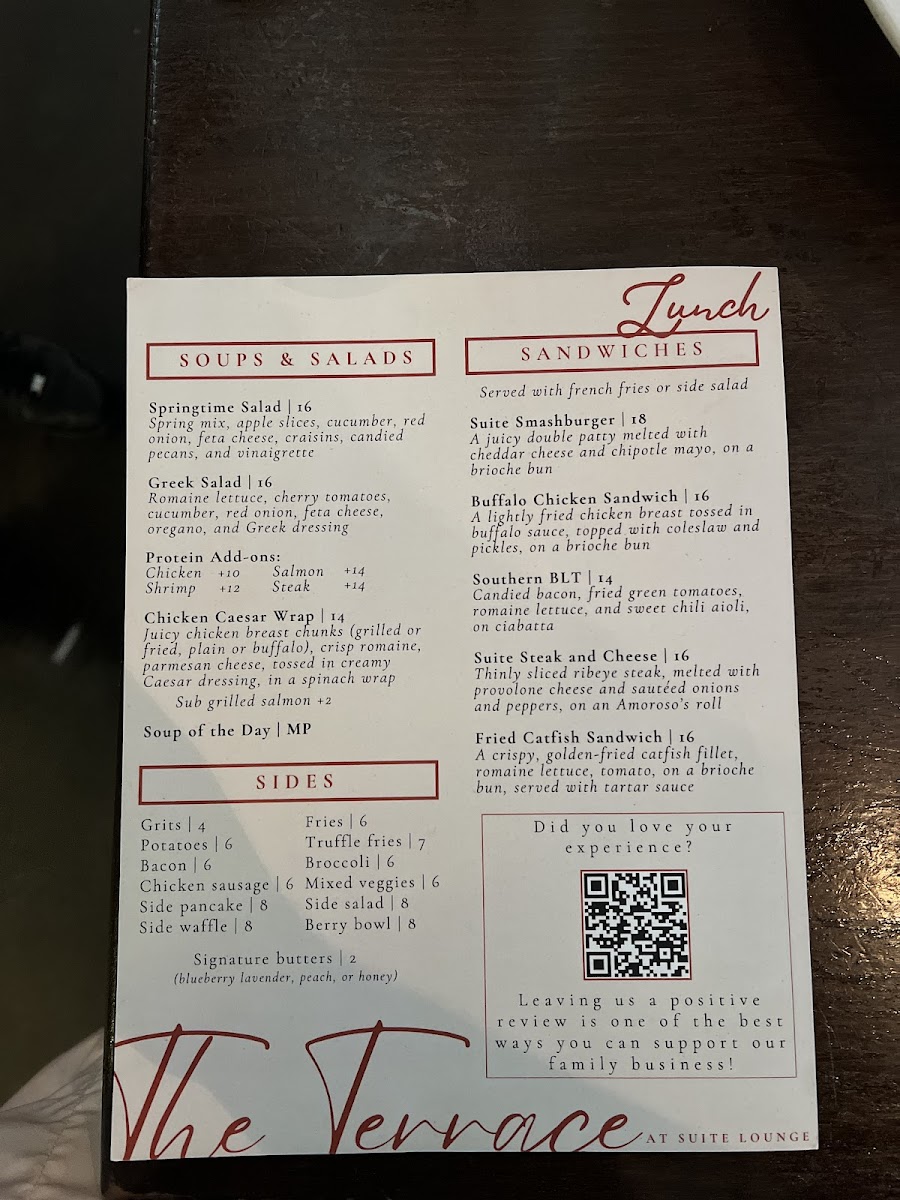 Lunch
SOUPS & SALADS
Springtime Salad | 16
Spring mix, apple slices, cucumber, red
onion, feta cheese, craisins, candied
pecans, and vinaigrette
Greek Salad | 16
Romaine lettuce, cherry tomatoes,
cucumber, red onion, feta cheese,
oregano, and Greek dressing
Protein Add-ons:
Chicken +10 Salmon +14
Shrimp +12 Steak +14
Chicken Caesar Wrap | 14
Juicy chicken breast chunks (grilled or
fried, plain or buffalo), crisp romaine,
parmesan cheese, tossed in creamy
Caesar dressing, in a spinach wrap
Sub grilled salmon +2
Soup of the Day | MP
SIDES
Grits | 4
Potatoes | 6
Bacon | 6
Chicken sausage | 6
Side pancake | 8
Side waffle | 8
Fries | 6
Truffle fries | 7
Broccoli | 6
Mixed veggies | 6
Side salad | 8
Berry bowl | 8
Signature butters | 2
(blueberry lavender, peach, or honey)
SANDWICHES
Served with french fries or side salad
Suite Smashburger | 18
A juicy double patty melted with
cheddar cheese and chipotle mayo, on a
brioche bun
Buffalo Chicken Sandwich | 16
A lightly fried chicken breast tossed in
buffalo sauce, topped with coleslaw and
pickles, on a brioche bun
Southern BLT | 14
Candied bacon, fried green tomatoes,
romaine lettuce, and sweet chili aioli,
on ciabatta
Suite Steak and Cheese | 16
Thinly sliced ribeye steak, melted with
provolone cheese and sautéed onions
and peppers, on an Amoroso's roll
Fried Catfish Sandwich | 16
A crispy, golden-fried catfish fillet,
romaine lettuce, tomato, on a brioche
bun, served with tartar sauce
Did you love your
experience?
Leaving us a positive
review is one of the best
ways you can support our
family business!
The Terrace AT SUITE LOUNGE